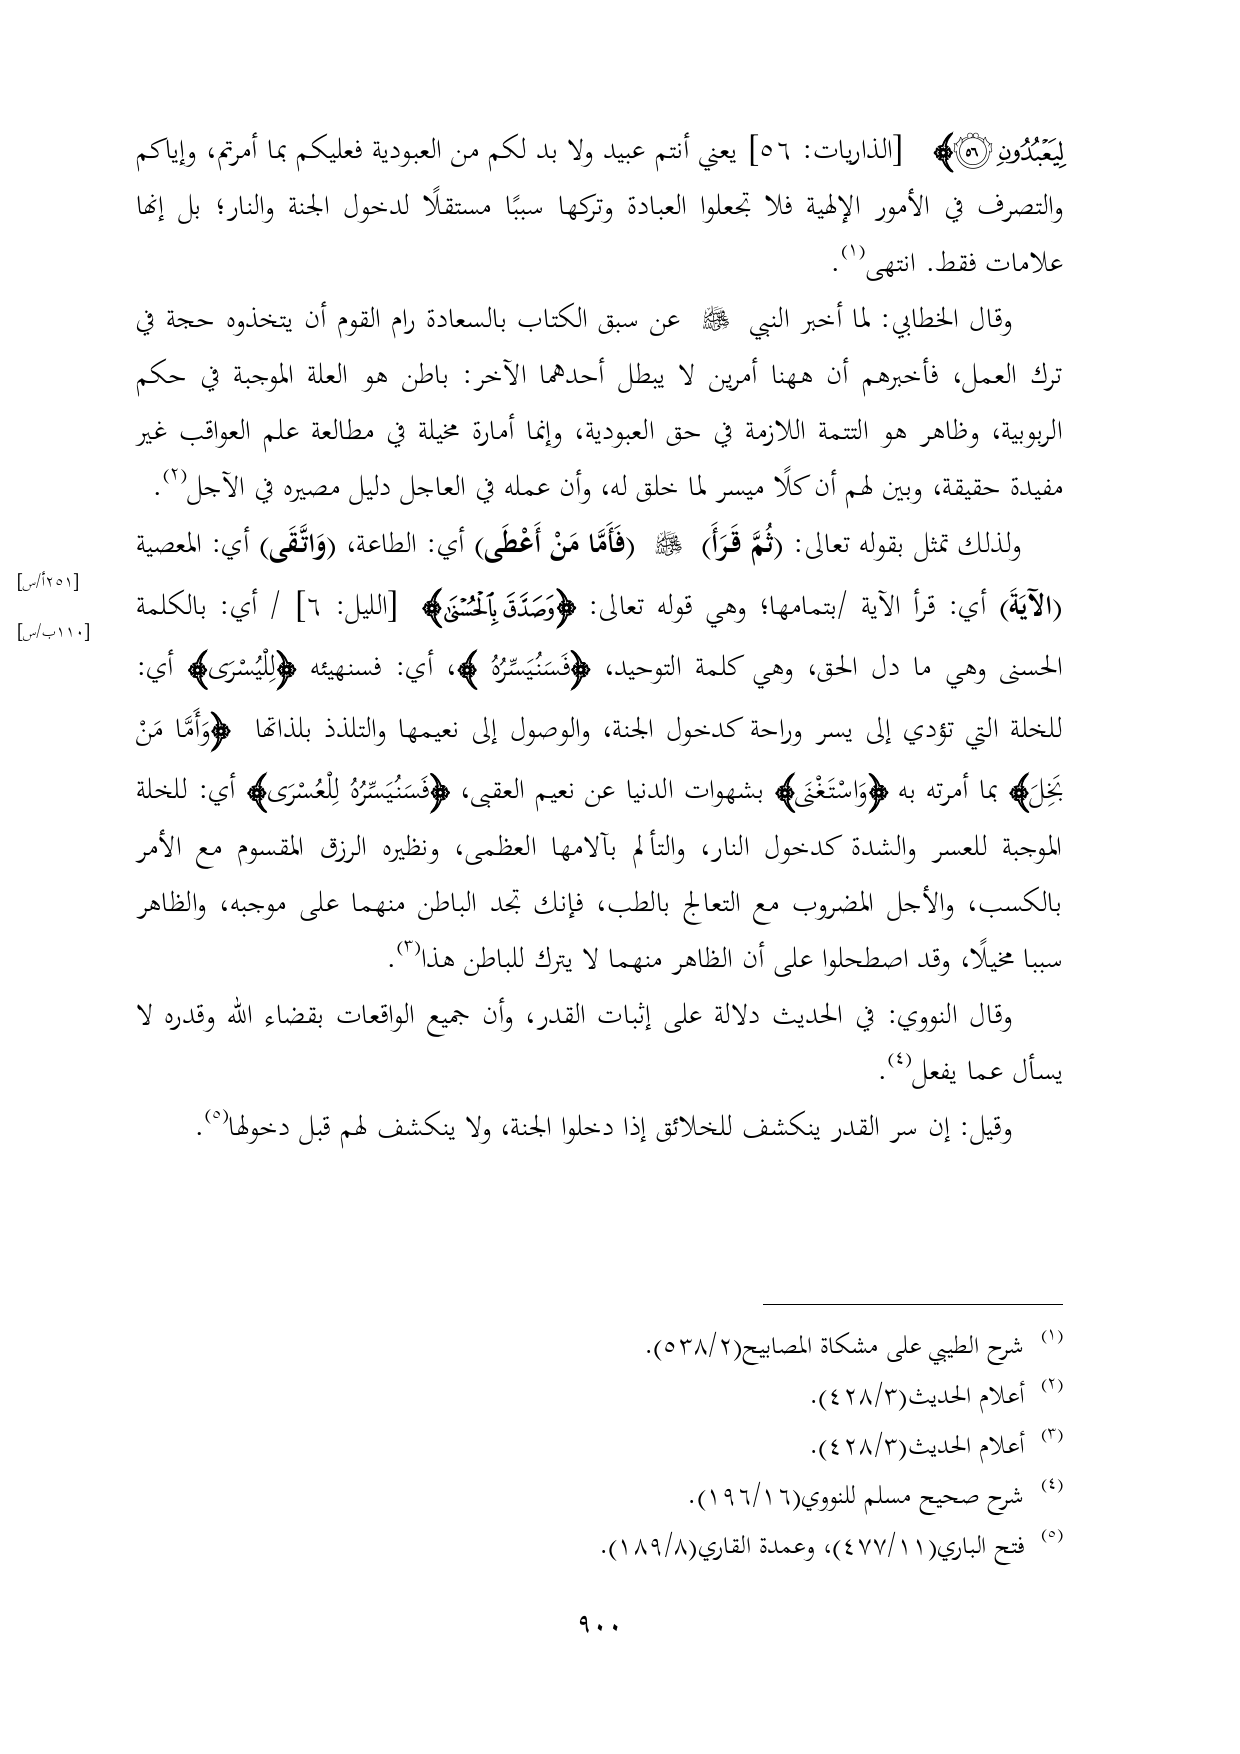 لِيَعْبُدُونِ ٥٦﴾ [الذاريات: ٥٦] يعني أنتم عبيد ولا بد لكم من العبودية فعليكم بما أمرتم، وإياكم
والتصرف في الأمور الإلهية فلا تجعلوا العبادة وتركها سببًا مستقلًا لدخول الجنة والنار؛ بل إنها
علامات فقط. انتهى(١).
وقال الخطابي: لما أخبر النبي ﷺ عن سبق الكتاب بالسعادة رام القوم أن يتخذوه حجة في
ترك العمل، فأخبرهم أن ههنا أمرين لا يبطل أحدهما الآخر: باطن هو العلة الموجبة في حكم
الربوبية، وظاهر هو التتمة اللازمة في حق العبودية، وإنما أمارة مخيلة في مطالعة علم العواقب غير
مفيدة حقيقة، وبين لهم أن كلًا ميسر لما خلق له، وأن عمله في العاجل دليل مصيره في الآجل(٢).
ولذلك تمثل بقوله تعالى: (ثُمَّ قَرَأَ) ﷺ (فَأَمَّا مَنْ أَعْطَى) أي: الطاعة، (وَاتَّقَى) أي: المعصية
[٢٥١أ/س]
(الآيَةَ) أي: قرأ الآية /بتمامها؛ وهي قوله تعالى: ﴿وَصَدَّقَ بِالْحُسْنَى﴾ [الليل: ٦] / أي: بالكلمة
[١١٠ب/س]
الحسنى وهي ما دل الحق، وهي كلمة التوحيد، ﴿فَسَنُيَسِّرُهُ ﴾، أي: فسنهيئه ﴿لِلْيُسْرَى﴾ أي:
للخلة التي تؤدي إلى يسر وراحة كدخول الجنة، والوصول إلى نعيمها والتلذذ بلذاتها ﴿وَأَمَّا مَنْ
بَخِلَ﴾ بما أمرته به ﴿وَاسْتَغْنَى﴾ بشهوات الدنيا عن نعيم العقبى، ﴿فَسَنُيَسِّرُهُ لِلْعُسْرَى﴾ أي: للخلة
الموجبة للعسر والشدة كدخول النار، والتألم بآلامها العظمى، ونظيره الرزق المقسوم مع الأمر
بالكسب، والأجل المضروب مع التعالج بالطب، فإنك تجد الباطن منهما على موجبه، والظاهر
سببا مخيلًا، وقد اصطحلوا على أن الظاهر منهما لا يترك للباطن هذا(٣).
وقال النووي: في الحديث دلالة على إثبات القدر، وأن جميع الواقعات بقضاء الله وقدره لا
يسأل عما يفعل(٤).
وقيل: إن سر القدر ينكشف للخلائق إذا دخلوا الجنة، ولا ينكشف لهم قبل دخولها(٥).
(١) شرح الطيبي على مشكاة المصابيح(٥٣٨/٢).
(٢) أعلام الحديث(٤٢٨/٣).
(٣) أعلام الحديث(٤٢٨/٣).
(٤) شرح صحيح مسلم للنووي(١٩٦/١٦).
(٥) فتح الباري(٤٧٧/١١)، وعمدة القاري(١٨٩/٨).
٩٠٠